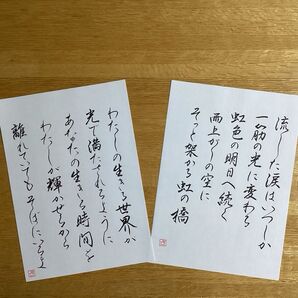 流した涙はいつしか
一筋の光に変わる
虹色の明日へ続く
雨上がりの空に
そっと架かる虹の橋
わたしの生きる世界が
光で満たされるように
あなたの生きる時間を
わたしが輝かせるから
離れていてもそばにいるよ